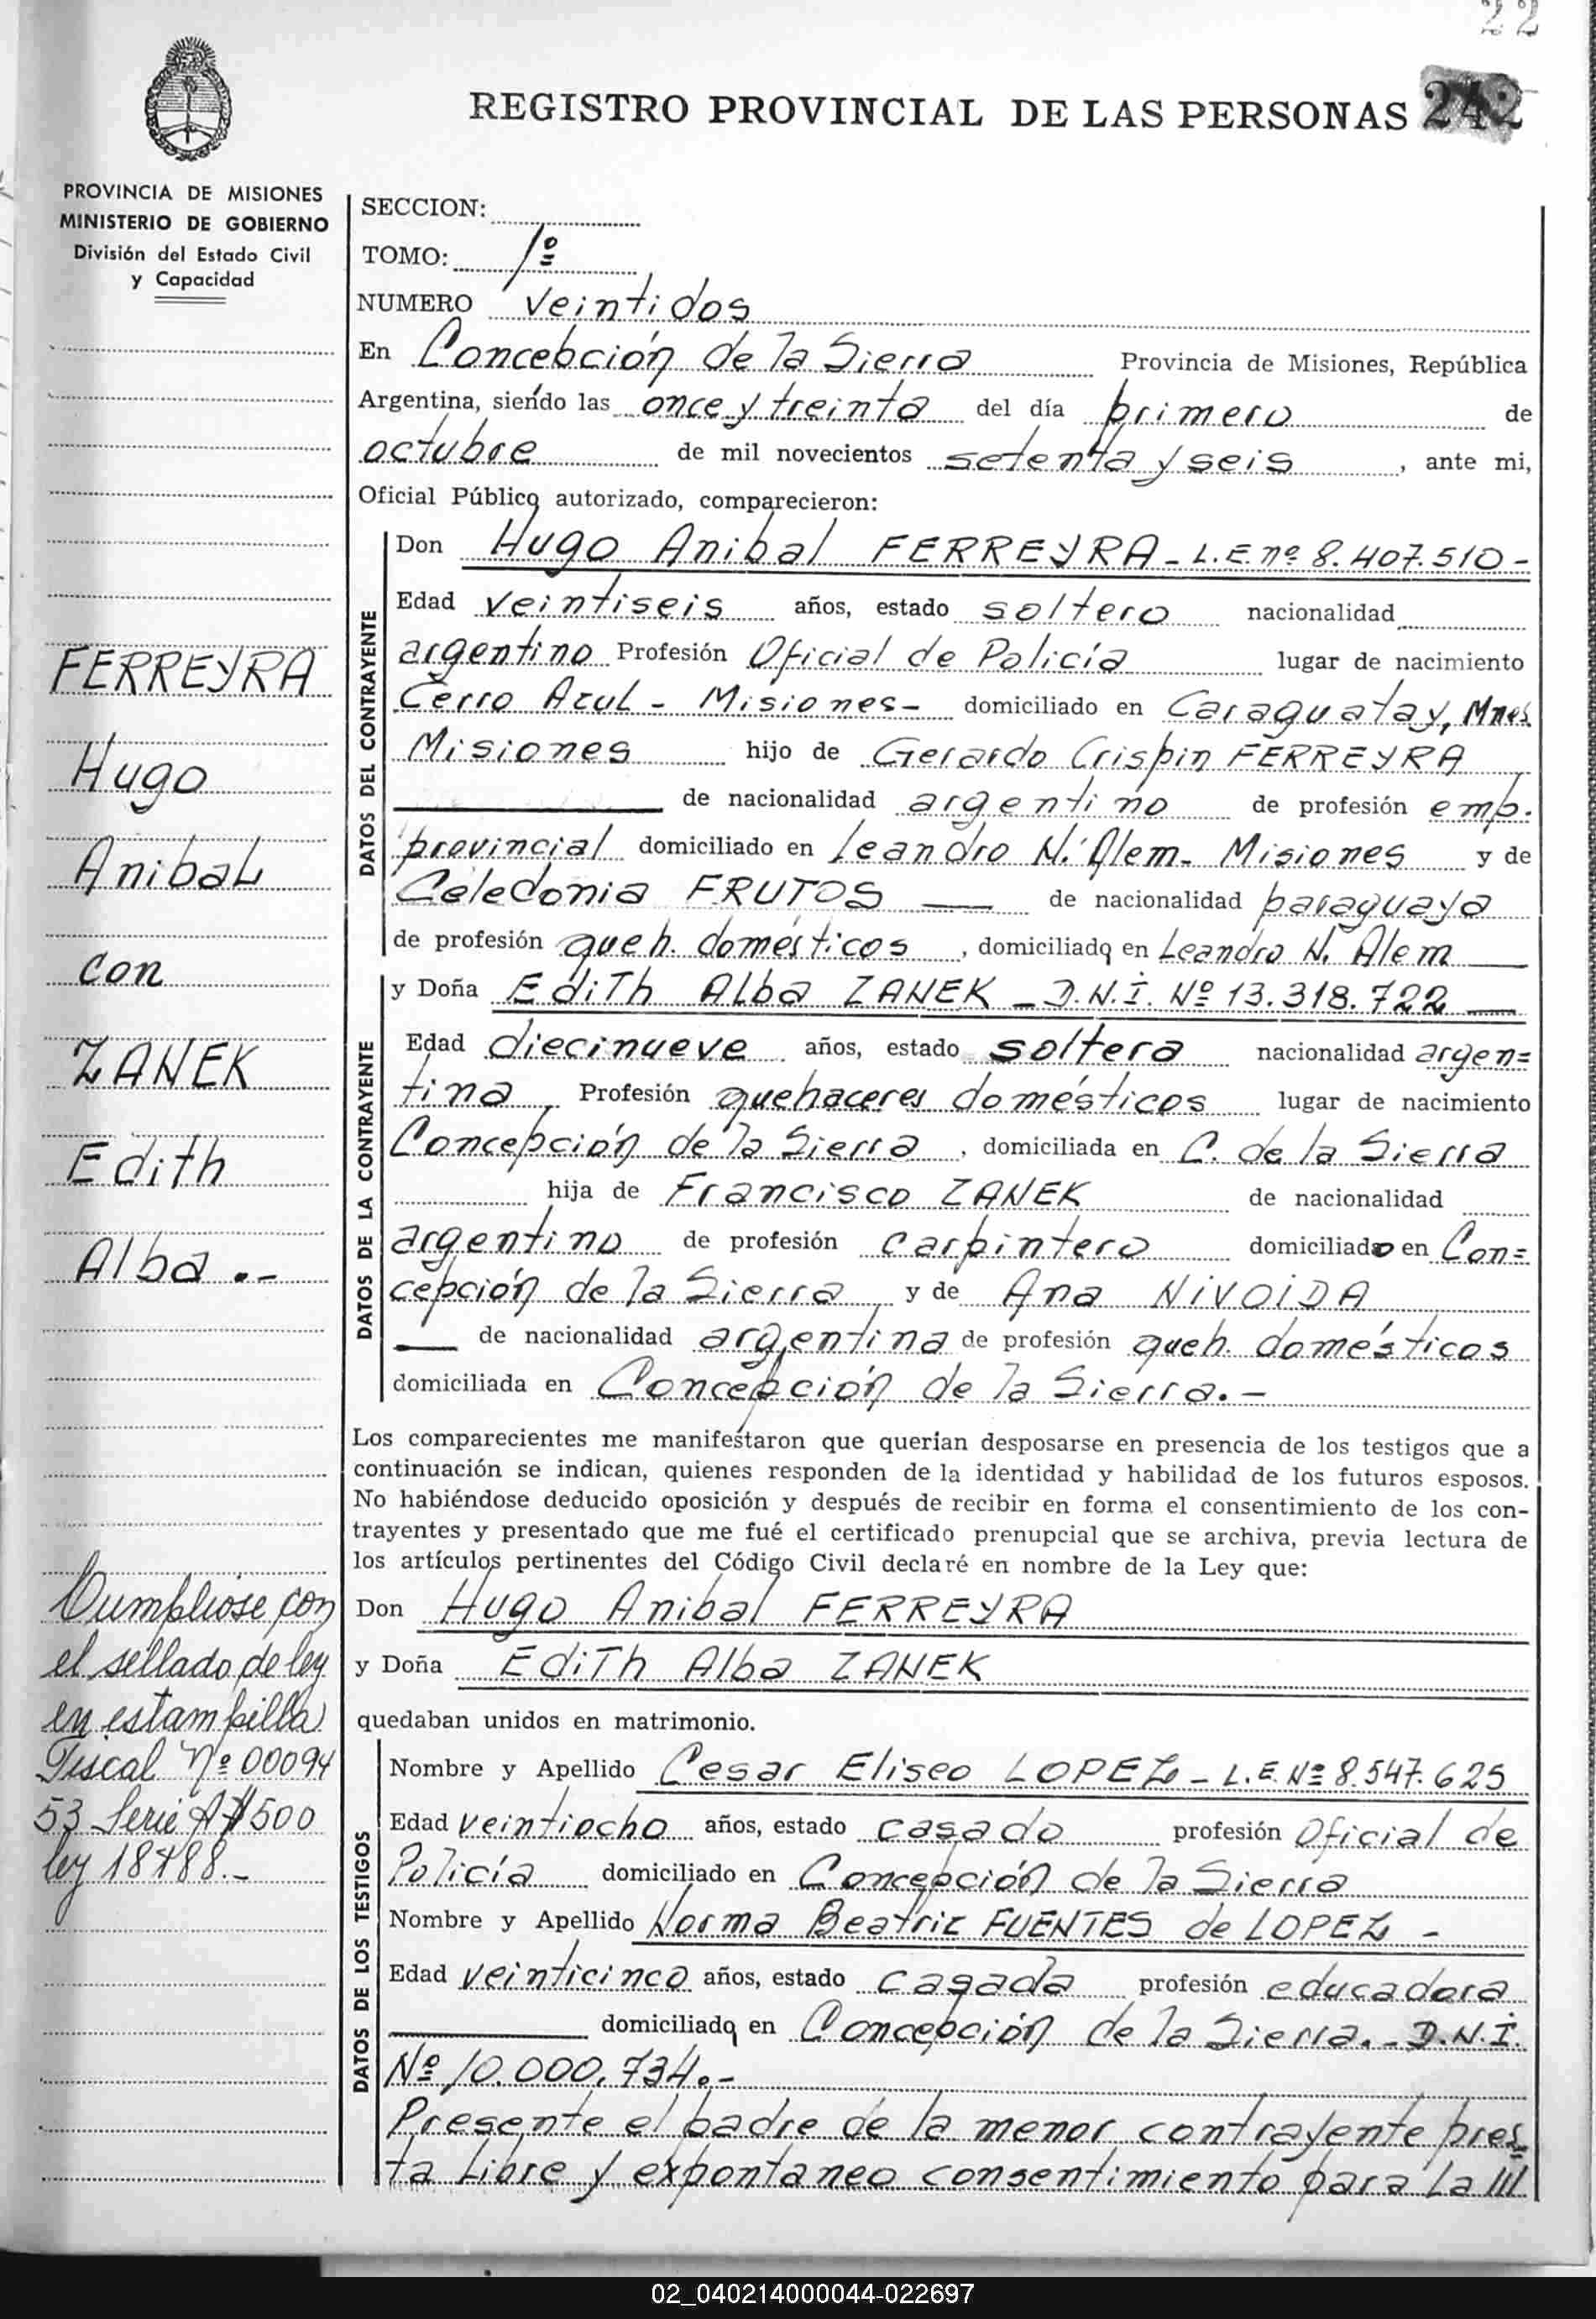 22
REGISTRO PROVINCIAL DE LAS PERSONAS 242
PROVINCIA DE MISIONES
MINISTERIO DE GOBIERNO
División del Estado Civil
y Capacidad
SECCION:
TOMO: 1º
NUMERO veintidos
En Concepción de la Sierra Provincia de Misiones, República
Argentina, siendo las once y treinta del día primero de
octubre de mil novecientos setenta y seis, ante mi,
Oficial Público autorizado, comparecieron:
DATOS DEL CONTRAYENTE
Don Hugo Anibal FERREYRA - L.E. nº 8.407.510 -
Edad veintiseis años, estado soltero nacionalidad
argentino Profesión Oficial de Policía lugar de nacimiento
Cerro Azul - Misiones - domiciliado en Caraguatay, Mnes.
Misiones hijo de Gerardo Crispin FERREYRA
de nacionalidad argentino de profesión emp.
provincial domiciliado en Leandro N. Alem - Misiones y de
Celedonia FRUTOS — de nacionalidad paraguaya
de profesión queh. domésticos, domiciliada en Leandro N. Alem —
DATOS DE LA CONTRAYENTE
y Doña Edith Alba ZANEK - D.N.I. Nº 13.318.722 —
Edad diecinueve años, estado soltera nacionalidad argen=
tina, Profesión quehaceres domésticos lugar de nacimiento
Concepción de la Sierra, domiciliada en C. de la Sierra
hija de Francisco ZANEK de nacionalidad
argentino de profesión carpintero domiciliado en Con=
cepción de la Sierra, y de Ana NIVOIDA
— de nacionalidad argentina de profesión queh. domésticos
domiciliada en Concepción de la Sierra. -
Los comparecientes me manifestaron que querían desposarse en presencia de los testigos que a
continuación se indican, quienes responden de la identidad y habilidad de los futuros esposos.
No habiéndose deducido oposición y después de recibir en forma el consentimiento de los con-
trayentes y presentado que me fué el certificado prenupcial que se archiva, previa lectura de
los artículos pertinentes del Código Civil declaré en nombre de la Ley que:
Don Hugo Anibal FERREYRA
y Doña Edith Alba ZANEK
quedaban unidos en matrimonio.
DATOS DE LOS TESTIGOS
Nombre y Apellido Cesar Eliseo LOPEZ - L.E. Nº 8.547.625
Edad veintiocho años, estado casado profesión Oficial de
Policía domiciliado en Concepción de la Sierra
Nombre y Apellido Norma Beatriz FUENTES de LOPEZ -
Edad veinticinco años, estado casada profesión educadora
domiciliada en Concepción de la Sierra. - D.N.I.
Nº 10.000.734. -
Presente el padre de la menor contrayente pres=
ta libre y expontaneo consentimiento para la ///
FERREYRA
Hugo
Anibal
con
ZANEK
Edith
Alba . -
Cumpliose con
el sellado de ley
en estampilla
Fiscal Nº 00094
53 Serie A $ 500
ley 18488. -
02_040214000044-022697